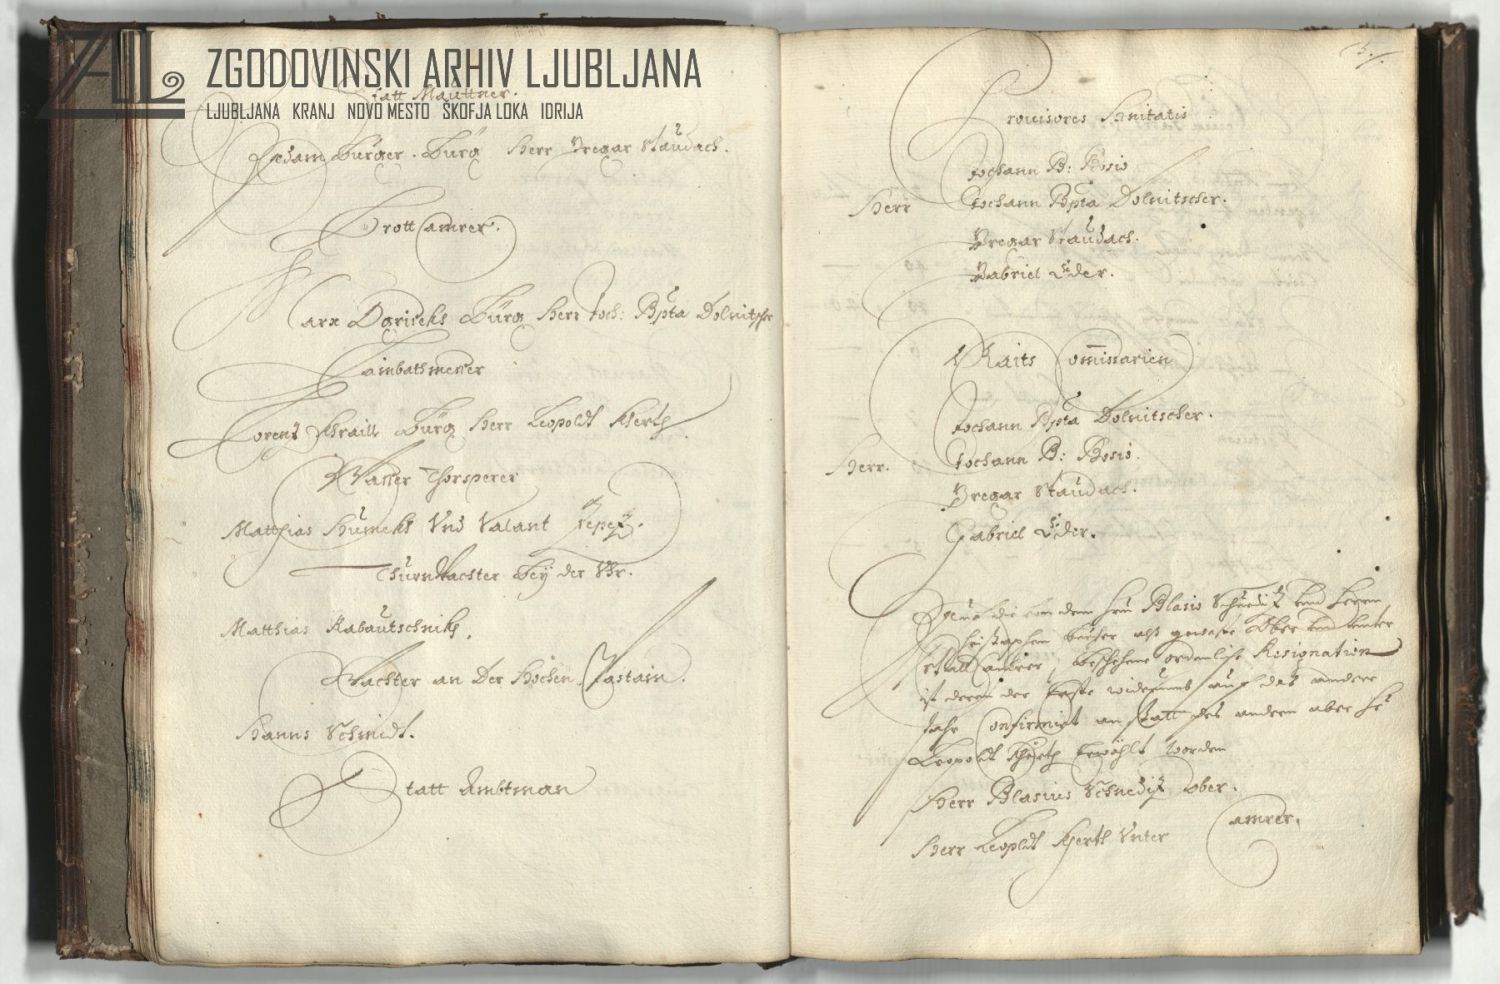 ZGODOVINSKI ARHIV LJUBLJANA
LJUBLJANA KRANJ NOVO MESTO ŠKOFJA LOKA IDRIJA
Statt Mauttner.
Adam Bürger. Bürg Herr Gregor Staudach.
Brott Camrer.
Marx Bürg Herr Joh: Bpta Dolnitscher
Zimbathmesser
Lorenz Bürg Herr Leopoldt
Wasser Thorsperer
Matthias Vnd Valant
Thurn Wachter Bey der Vhr.
Matthias Rabautschnikh.
Wachter an Der Hochen Pastain.
Hanns Schmidt.
Statt Ambtman
5.
Prouisores Sanitatis
Johann B: Bosio
Herr Johann Bpta Dolnitscher.
Gregor Staudach.
Gabriel Eder.
Raits Commissarien
Johann Bpta Dolnitscher.
Herr. Johann B: Bosio.
Gregor Staudach.
Gabriel Eder.
die von dem Herrn Blasio Schnediz vnd Herrn
alss geweste Ober vnd Vnter
Statt Camrer, beschehene ordenliche Resignation
ist deren der Erste widerumb auf das andere
Jahr Confirmiert an statt des andern aber Hr
Leopoldt Erwöhlt worden
Herr Blasius Schnediz ober.
Camrer.
Herr Leopldt Vnter